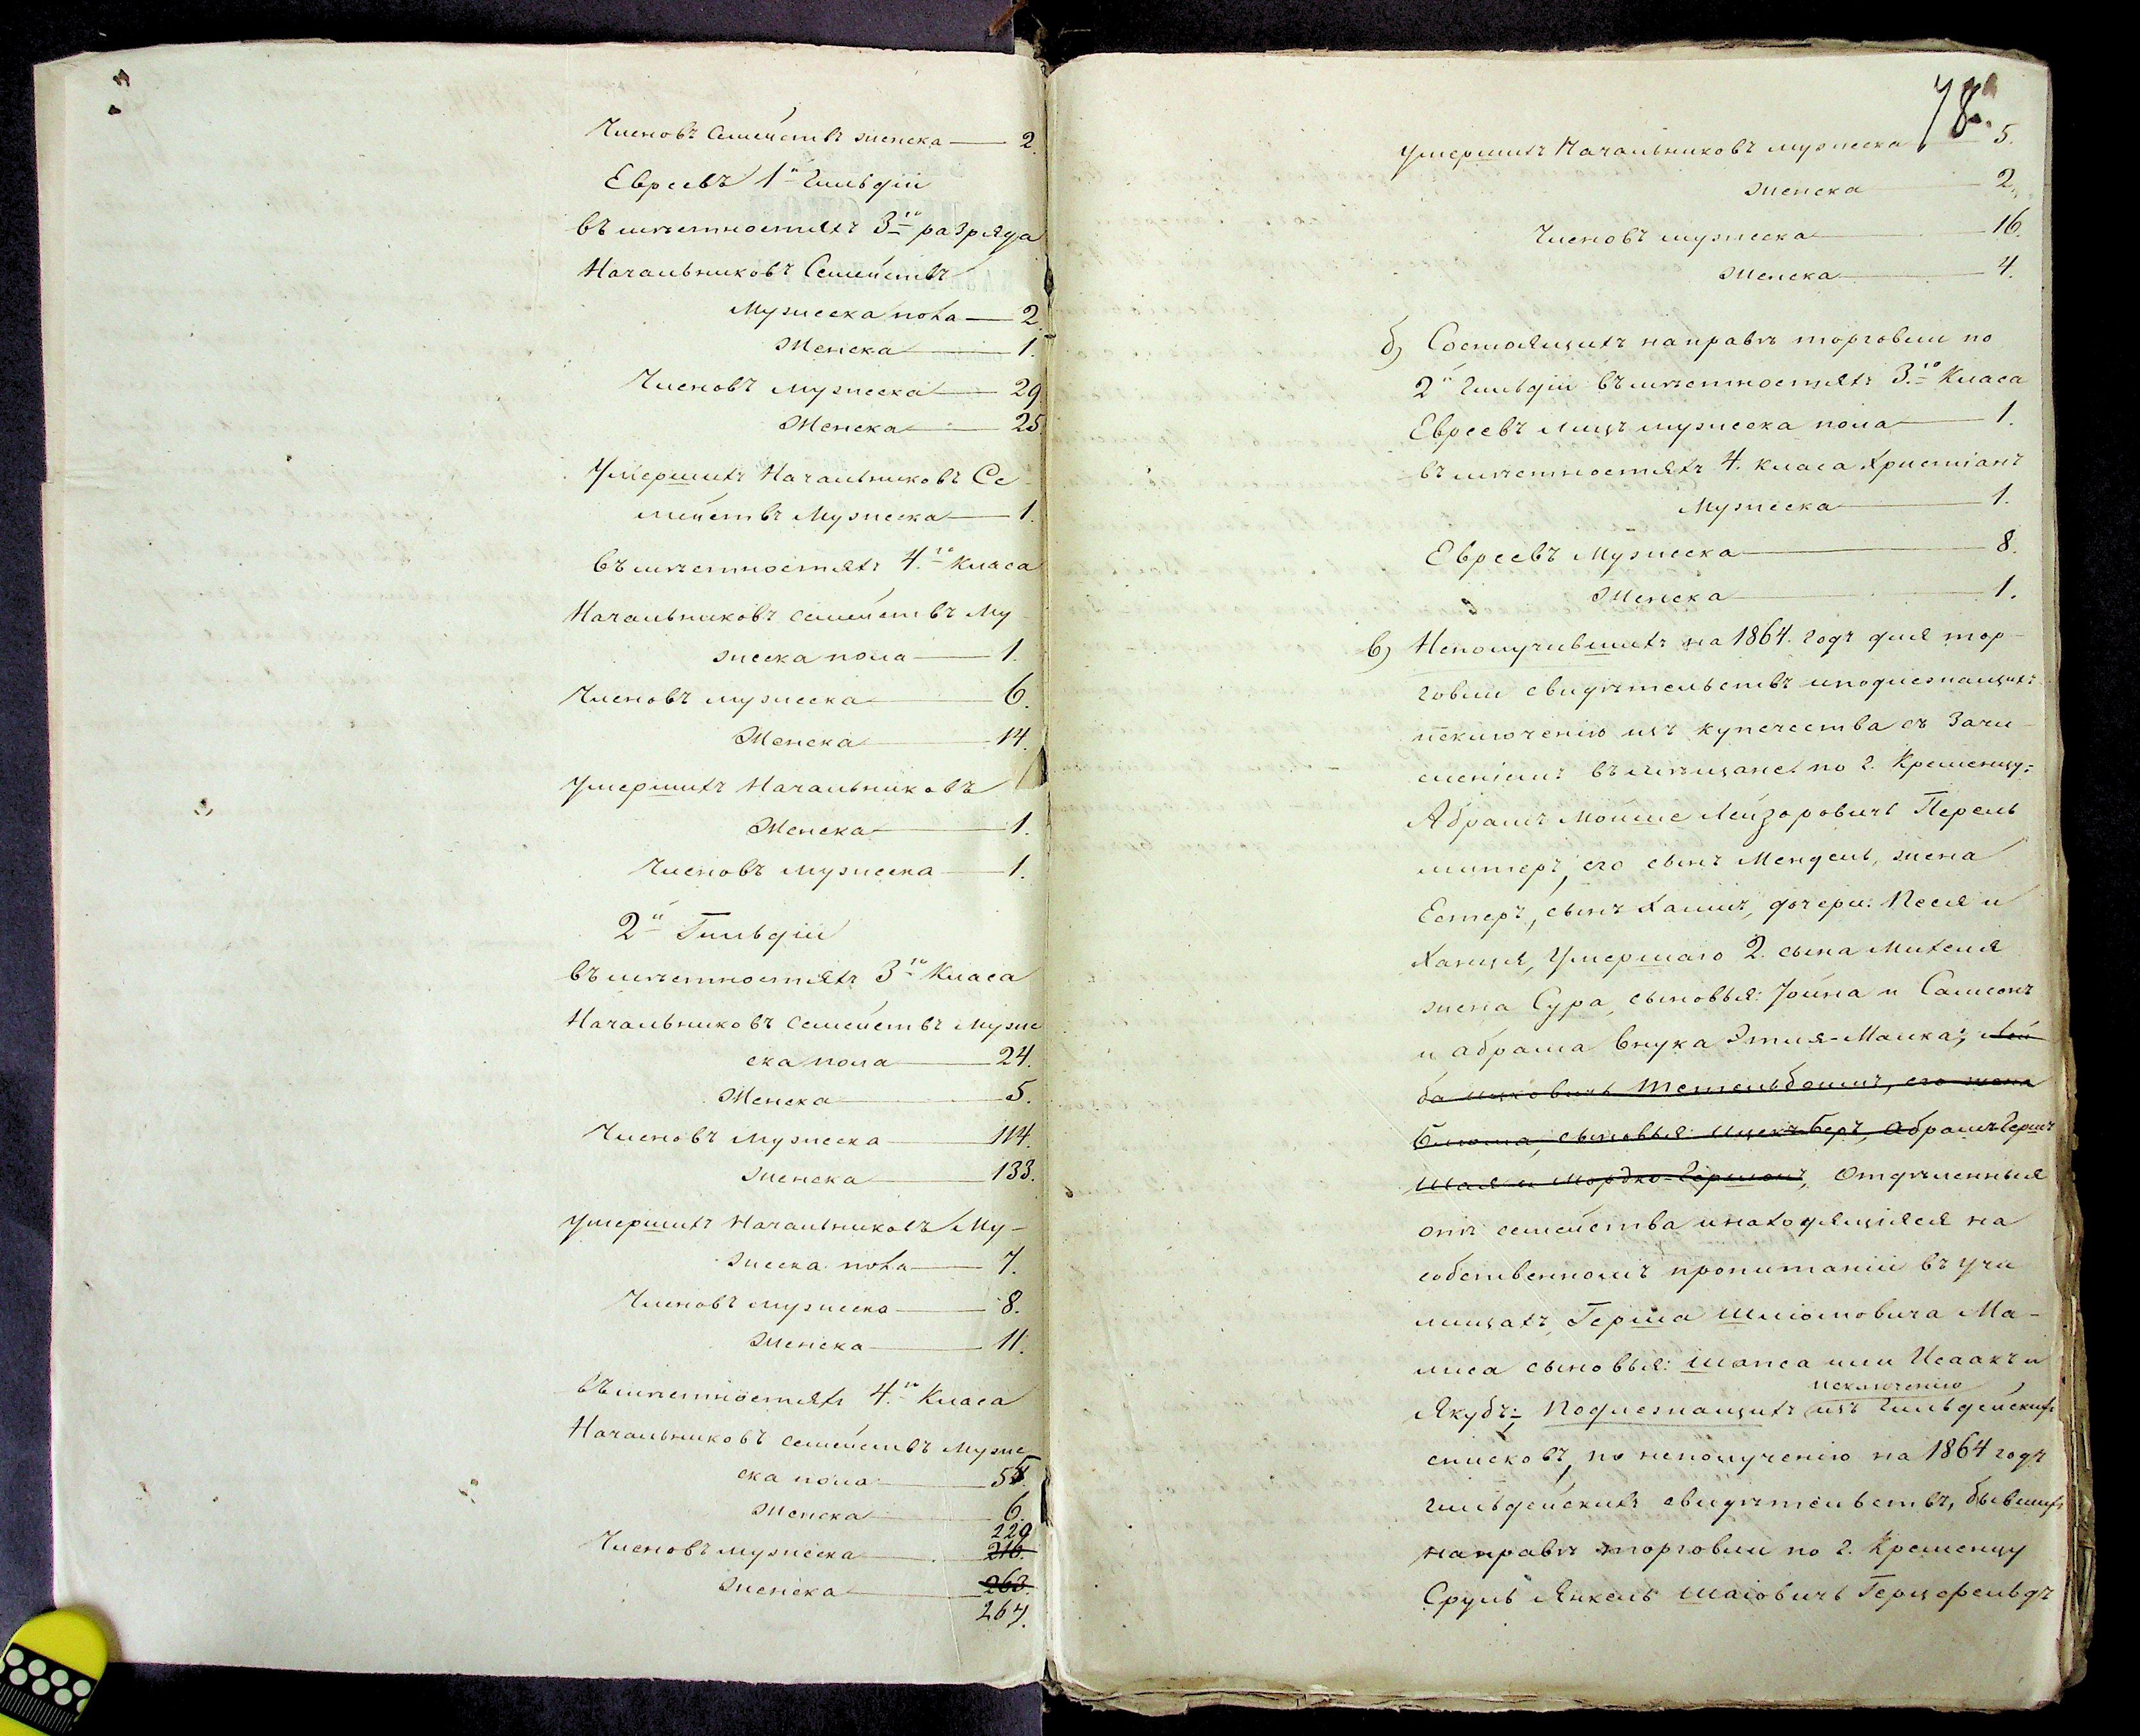 Членовъ Семействъ женска — 2.
Евреевъ 1й Гильдіи
въ мѣстностяхъ 3го разряда
Начальниковъ Семействъ
Мужеска пола — 2.
Женска — 1.
Членовъ мужеска — 29.
Женска — 25.
Умершихъ Начальниковъ Се-
мействъ Мужеска — 1.
въ мѣстностяхъ 4.го Класа
Начальниковъ семействъ Му-
жеска пола — 1.
Членовъ мужеска — 6.
Женска — 14.
Умершихъ Начальниковъ
Женска — 1.
Членовъ мужеска — 1.
2й Гильдіи
въ мѣстностяхъ 3го Класа
Начальниковъ семействъ муже
ска пола — 24.
Женска — 5.
Членовъ Мужеска — 114.
Женска — 133.
Умершихъ Начальниковъ Му-
жеска пола — 7.
Членовъ мужеска — 8.
Женска — 11.
въ мѣстностяхъ 4.го Класа
Начальниковъ семействъ муже
ска пола — 55.
Женска — 6.
229
Членовъ мужеска — 216.
Женска — 263.
264.
78.
Умершихъ Начальниковъ мужеска — 5.
Женска — 2.
Членовъ мужеска — 16.
Женска — 4.
б) Состоящихъ на правѣ торговли по
2й Гильдіи въ мѣстностяхъ 3.го Класа
Евреевъ лицъ мужеска пола — 1.
въ мѣстностяхъ 4. класа Христіанъ
Мужеска — 1.
Евреевъ Мужеска — 8.
Женска — 1.
в) Неполучившихъ на 1864. годъ для тор-
говли свидѣтельствъ и подлежащихъ
исключенію изъ купечества съ Зачи-
сленіемъ въ мѣщане. по г. Кременцу:
Абрамъ Мойше Лейзоровичъ Перель
мутеръ, его сынъ Мендель, жена
Естеръ, сынъ Хаимъ, дочери: Песя и
Ханця, Умершаго 2. сына Михеля
жена Сура, сыновья: Іойна и Самсонъ
и абрама внука Этля-Малка; Лей
ба Ицковичъ Тетельбоимъ, его жена
Блюма, сыновья: Ицекъ-Беръ, Абрамъ Гершъ
Шая и Мордко-Гершонъ, Отдѣленныя
отъ семейства и находящіяся на
собственномъ пропитаніи въ учи
лищахъ, Герша Шліомовича Ма-
лиса сыновья: Шапса или Исаакъ и
исключенію
Якубъ; Подлежащихъ изъ Гильдейскихъ
списковъ, по неполученію на 1864 годъ
гильдейскихъ свидѣтельствъ, бывшихъ
на правѣ торговли по г. Кременцу
Сруль Янкель Шаіовичъ Герцфельдъ